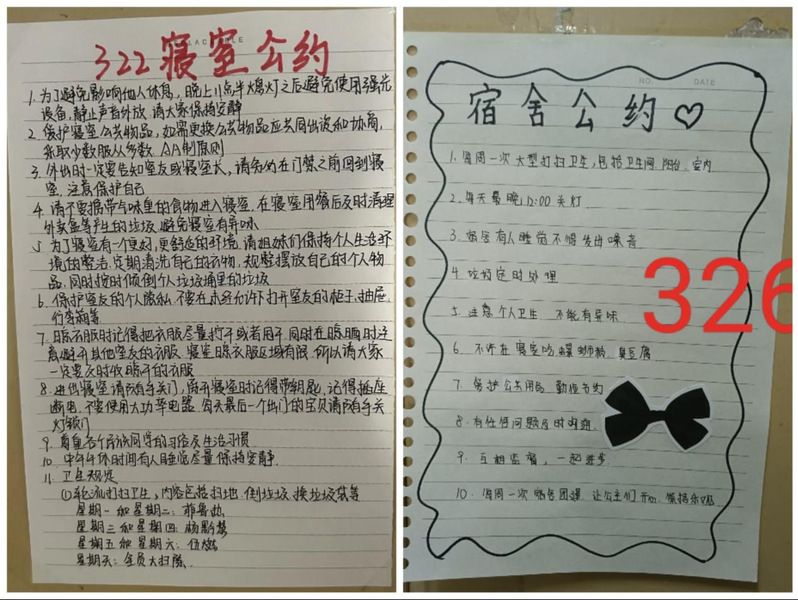 322寝室公约
1. 为了避免影响他人休息，晚上11点半熄灯之后避免使用强光
设备，静止声音外放，请大家保持安静
2. 保护寝室公共物品，如需更换公共物品应共同出资和协商，
采取少数服从多数，AA制原则
3. 外出时一定要告知室友或寝室长，请务必在门禁之前回到寝
室，注意保护自己
4. 请不要携带气味重的食物进入寝室，在寝室用餐后及时清理
外卖盒等产生的垃圾，避免寝室有异味
5. 为了寝室有一个更好，更舒适的环境，请姐妹们保持个人生活环
境的整洁，定期清洗自己的衣物，规整摆放自己的个人物
品，同时按时倾倒个人垃圾桶里的垃圾
6. 保护室友的个人隐私，不要在未经允许下打开室友的柜子，抽屉，
行李箱等
7. 晾衣服时记得把衣服尽量拧干或者甩干，同时在晾晒时注
意避开其他室友的衣服，寝室晾衣服区域有限，所以请大家
一定要及时收晾干的衣服
8. 进出寝室请随手关门，离开寝室时记得带钥匙，记得插座
断电，不要使用大功率电器，每天最后一个出门的宝贝请随手关
灯锁门
9. 尊重各个民族同学的习俗及生活习惯
10. 中午午休时间有人睡觉尽量保持安静
11. 卫生规定
①轮流打扫卫生，内容包括扫地，倒垃圾，换垃圾袋等
星期一和星期二：
星期三和星期四：杨
星期五和星期六：伍
星期天：全员大扫除
NO. DATE
宿舍公约♡
1. 每周一次大型打扫卫生，包括卫生间，阳台，室内
2. 每天最晚12:00关灯
3. 宿舍有人睡觉不得发出噪音
4. 垃圾定时处理
5. 注意个人卫生 不能有异味
6. 不许在寝室吃螺蛳粉，臭豆腐
7. 爱护公共用品，勤俭节约
8. 有任何问题及时沟通
9. 互相监督，一起进步
10. 每周一次宿舍团建，让公主们开心，保持乐观
326